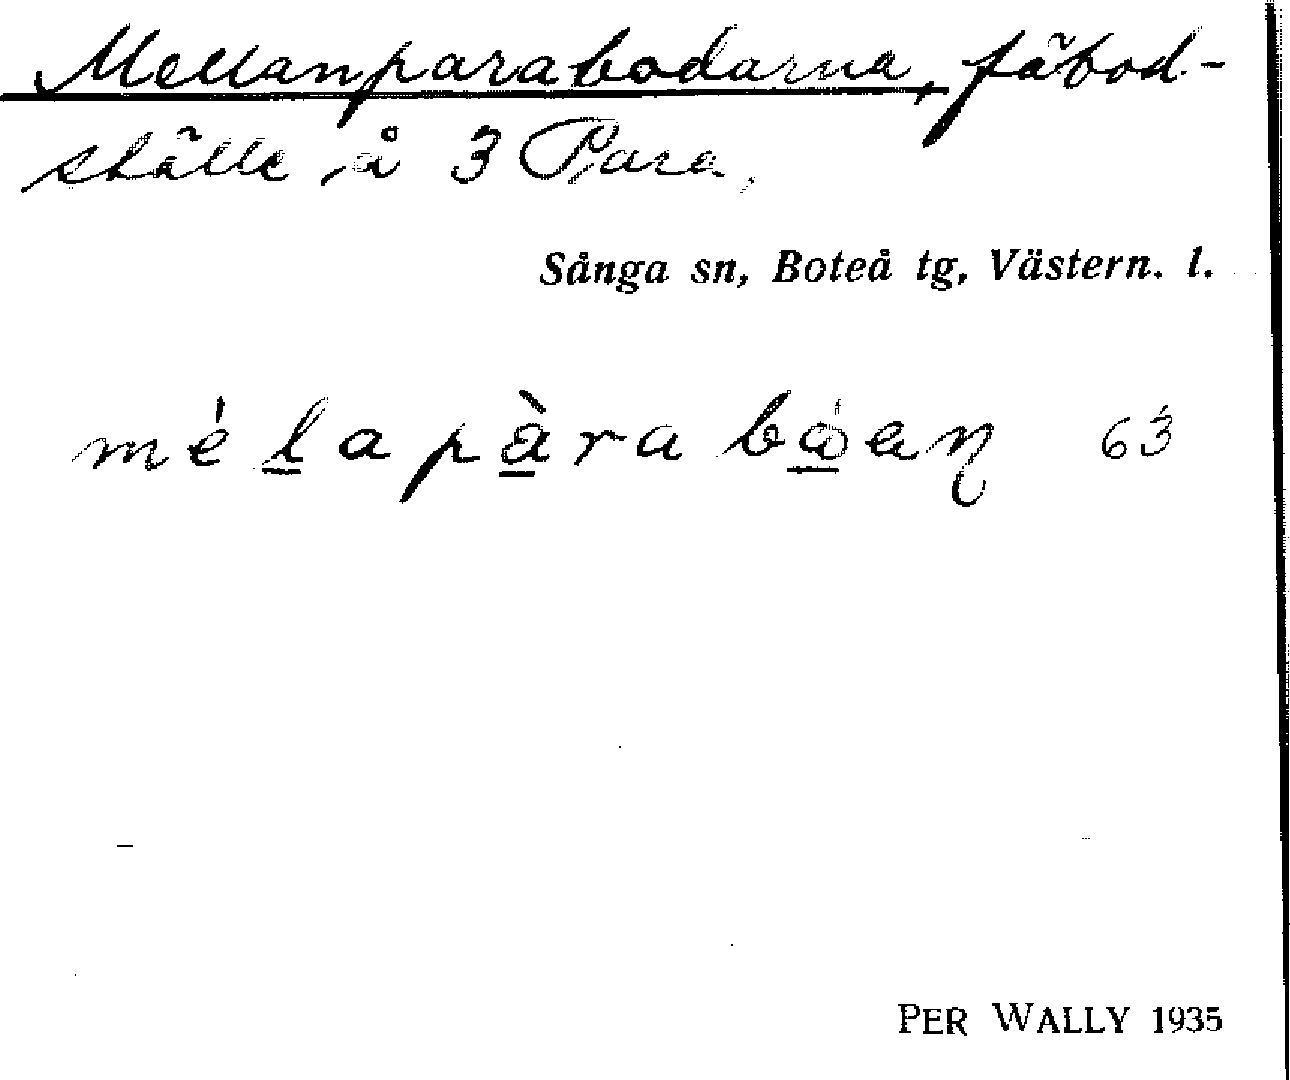 Mellanparabodarna, fäbod-
ställe å 3 Para,
Sånga sn, Boteå tg, Västern. l.
mé̍l̲apà̲rabώ̲aꞑ 63
PER WALLY 1935